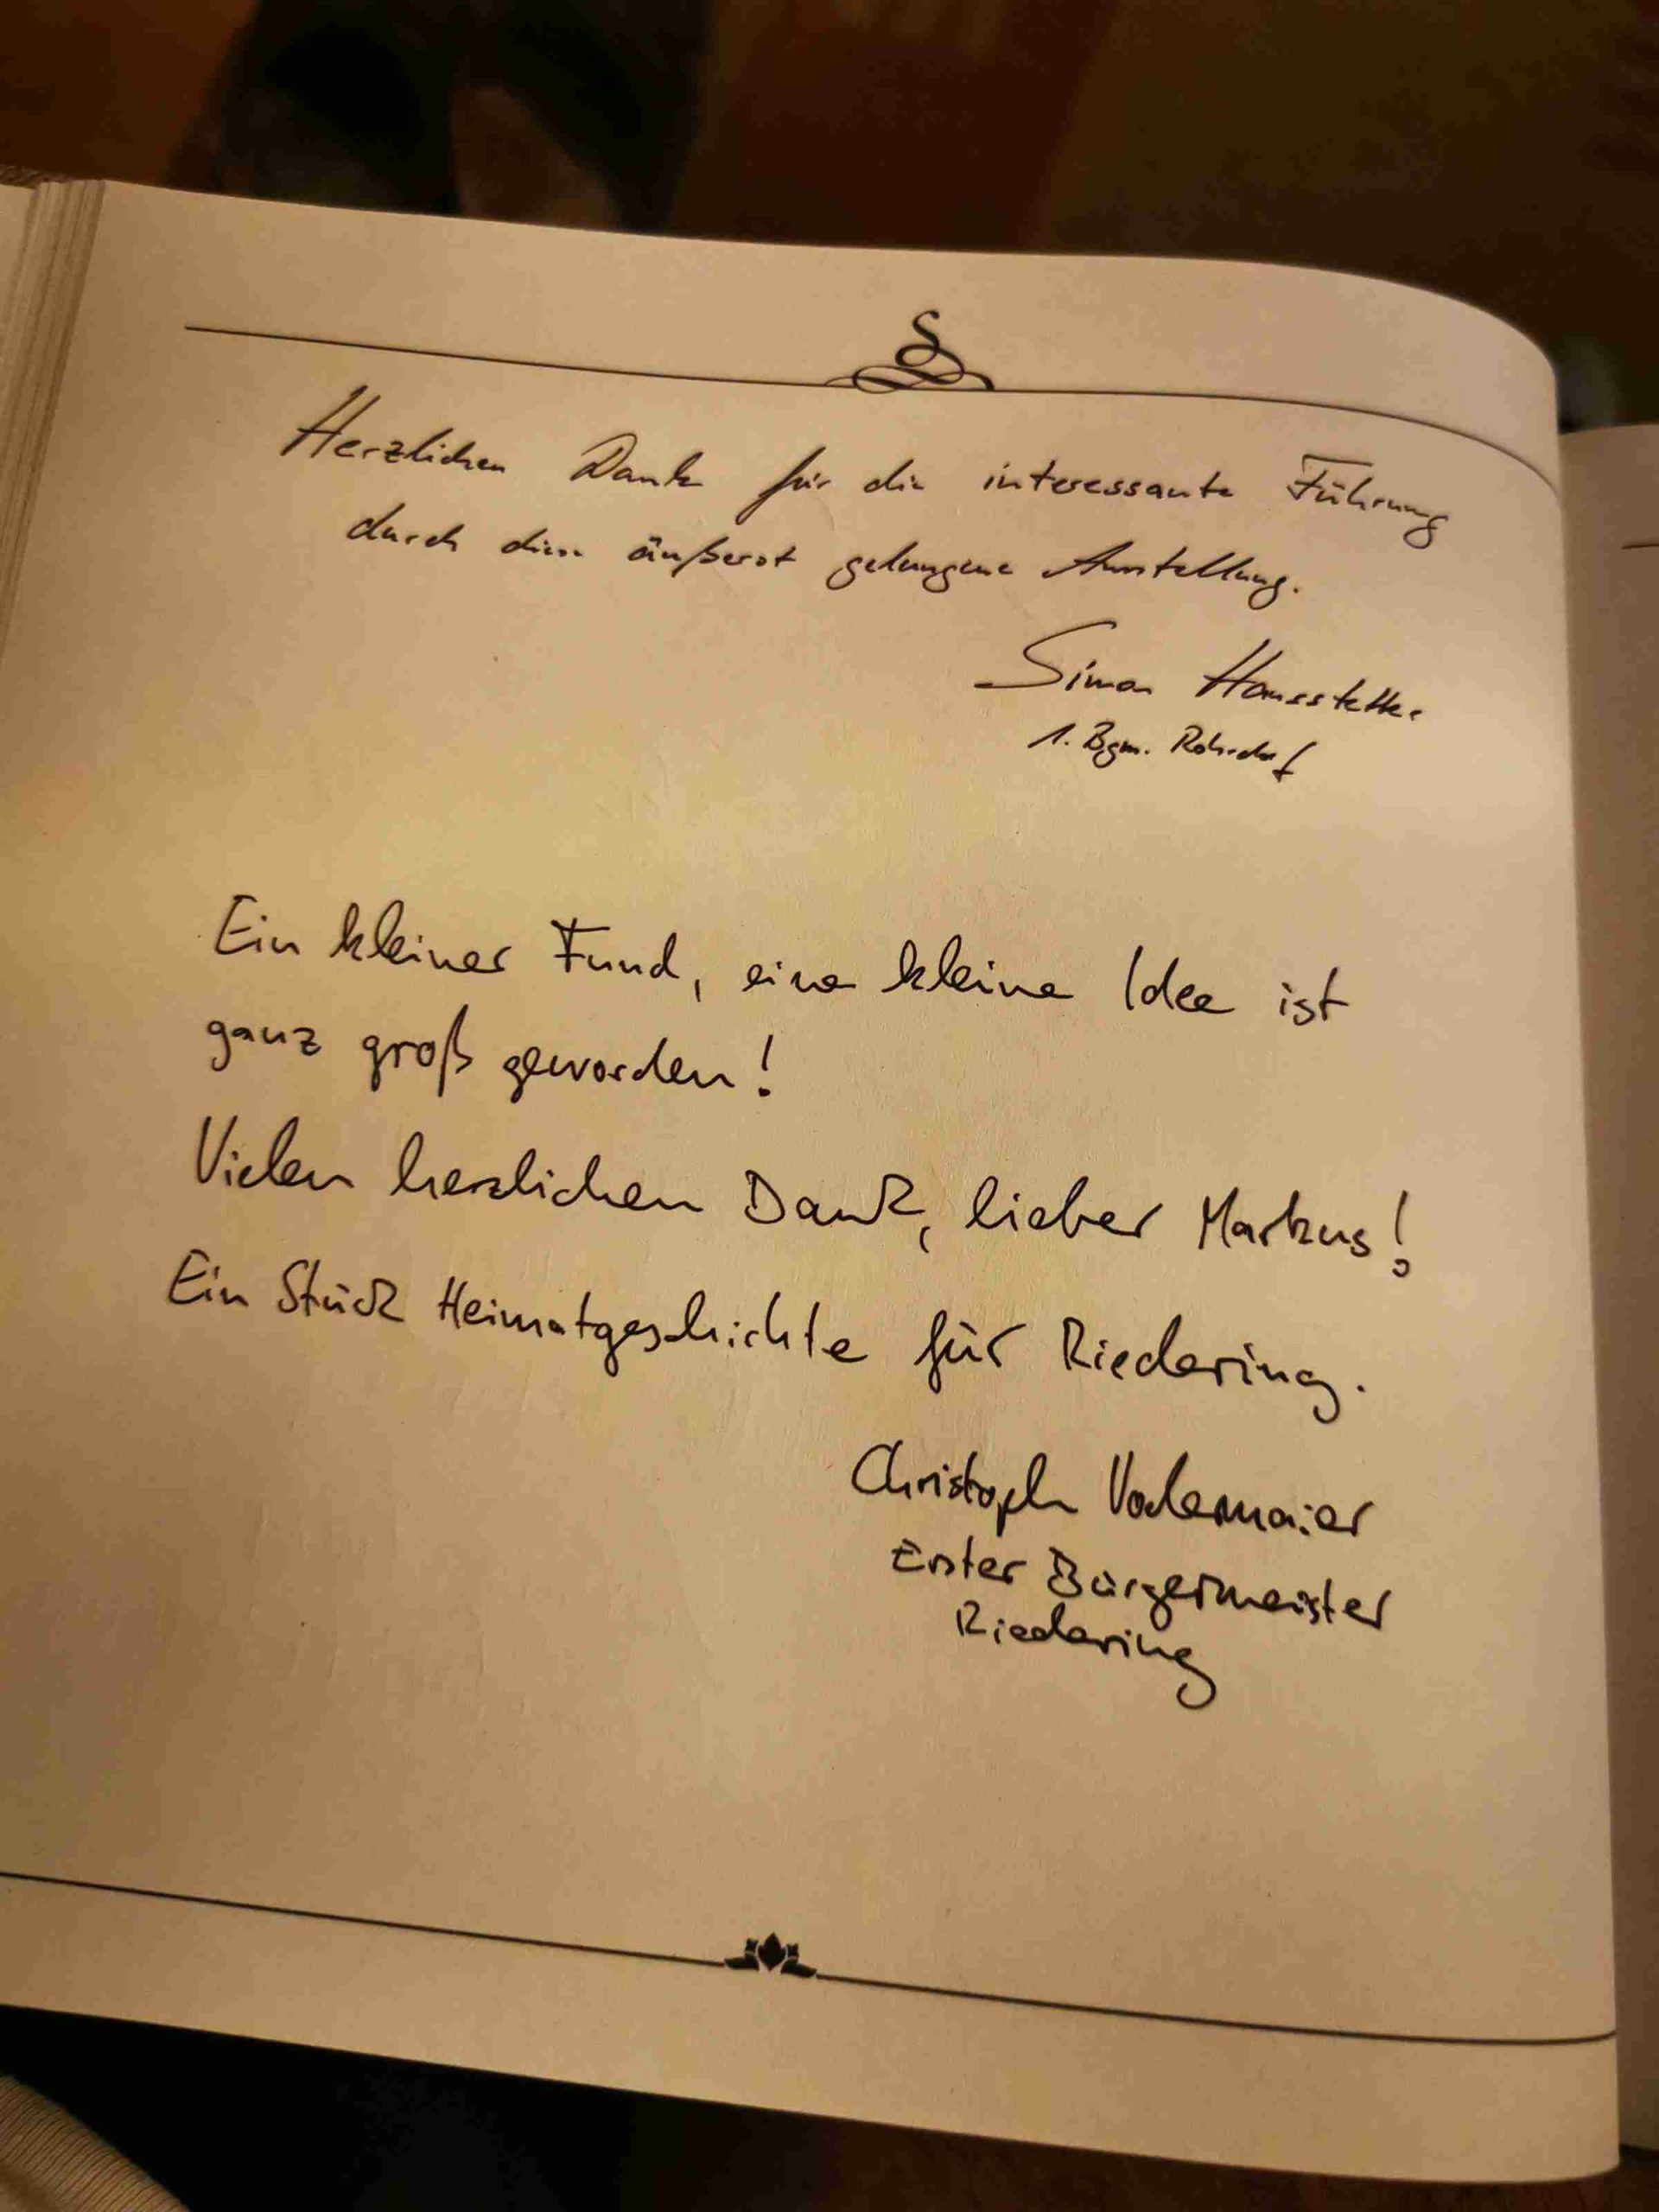 Herzlichen Dank für die interessante Führung
durch diese äußerst gelungene Ausstellung.
Simon Hausstetter
1. Bgm. Rohrdorf
Ein kleiner Fund, eine kleine Idee ist
ganz groß geworden!
Vielen herzlichen Dank, lieber Markus!
Ein Stück Heimatgeschichte für Riedering.
Christoph Vodermaier
Erster Bürgermeister
Riedering